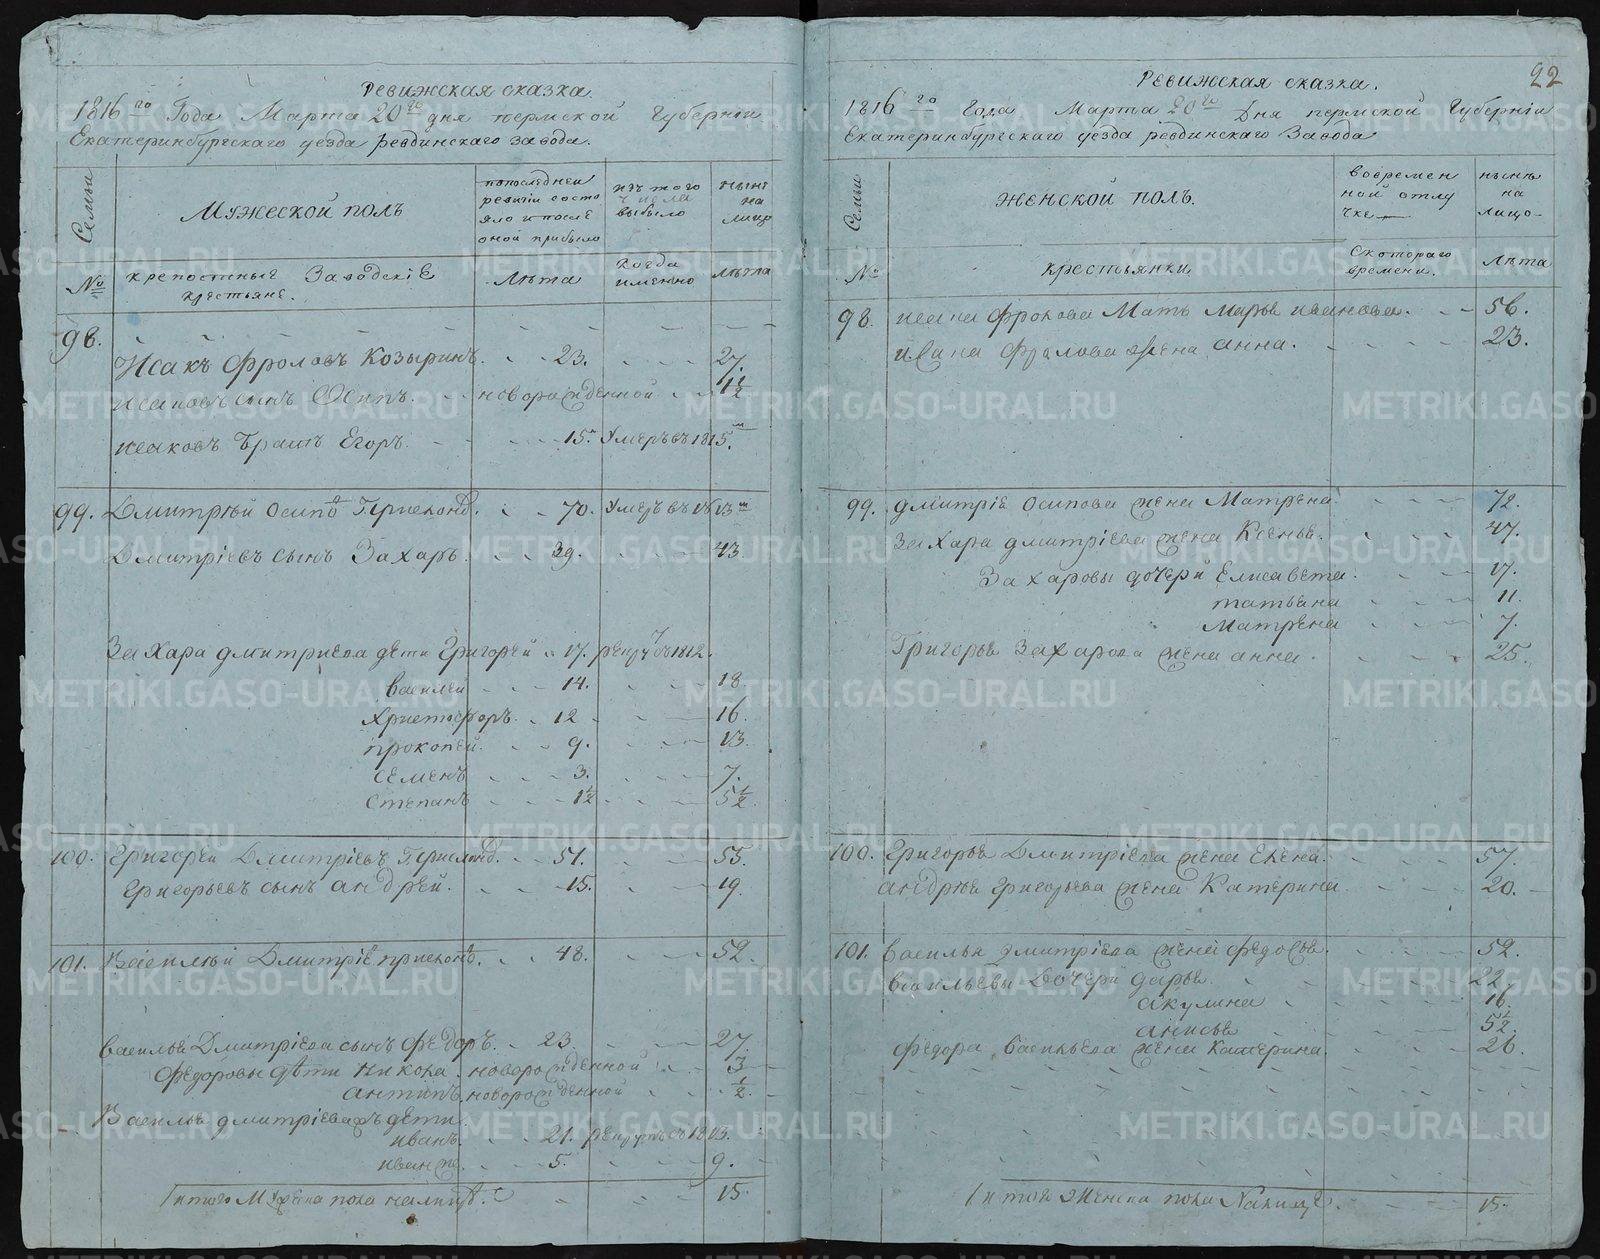 Ревижская сказка.
1816го Года Марта 20го дня пермской Губерніи
Екатеринбургскаго уезда ревдинскаго Завода.
Семьи
Мужеской полъ
попоследней ревизіи состояло и после оной прибыло
изъ того числа выбыло
ныне на лицо
№
крепостные Заводскіе крестьяне.
Лѣта
Когда именно
лѣта
98.
Исакъ Фроловъ Козыринъ. 23. 27.
исаковъ сынъ Осипъ. новорожденной 1½
исаковъ братъ Егоръ. 15. Умеръ въ 1815.
99. Дмитрѣй Осипов 70. Умеръ въ 1813
Дмитріевъ сынъ Захаръ. 39. 43.
Захара дмитриева дети Григорей 17. рекрутъ 1812.
василей 14. 18.
Христофоръ. 12 16.
прокопей. 9. 13.
семенъ 3. 7.
степанъ 1½ 5½
100. Григорей Дмитріевъ 51. 55.
Григорьевъ сынъ андрей. 15. 19.
101. Василѣй Дмитріе 48. 52.
василья Дмитріева сынъ Федоръ. 23. 27.
Федоровы дѣти Никола. новорожденной 3
антипъ. новорожденной ½.
Василья дмитріева дети
иванъ. 21. рекрутъ 1813.
иванже. 5. 9.
Итого Мужеска пола налицо. 15.
22
Ревижская сказка.
1816го Года Марта 20го Дня пермской Губерніи
Екатеринбургскаго уезда ревдинскаго Завода
Семьи
Женской полъ.
вовременной отлучке
нынѣ на лицо
№
крестьянки
Скотораго времени.
Лѣта
98. исака фролова Мать Марья иванова. 56.
ивана Фролова жена анна. 23.
99. дмитрія Осипова жена Матрена 72.
Захара дмитріева жена Ксенья. 47.
Захаровы дочери Елисавета. 17.
татьяна 11.
Матрена 7.
Григорья Захарова жена анна. 25.
100. Григорья Дмитріева жена Елена. 57.
андрея григорьева жена Катерина. 20.
101. василья дмитріева жена федосья. 52.
васильевы Дочери дарья. 22.
акулина 16.
анисья 5½.
федора васильева жена катерина. 26.
Итого Женска пола Налицо. 15.
METRIKI.GASO-URAL.RU